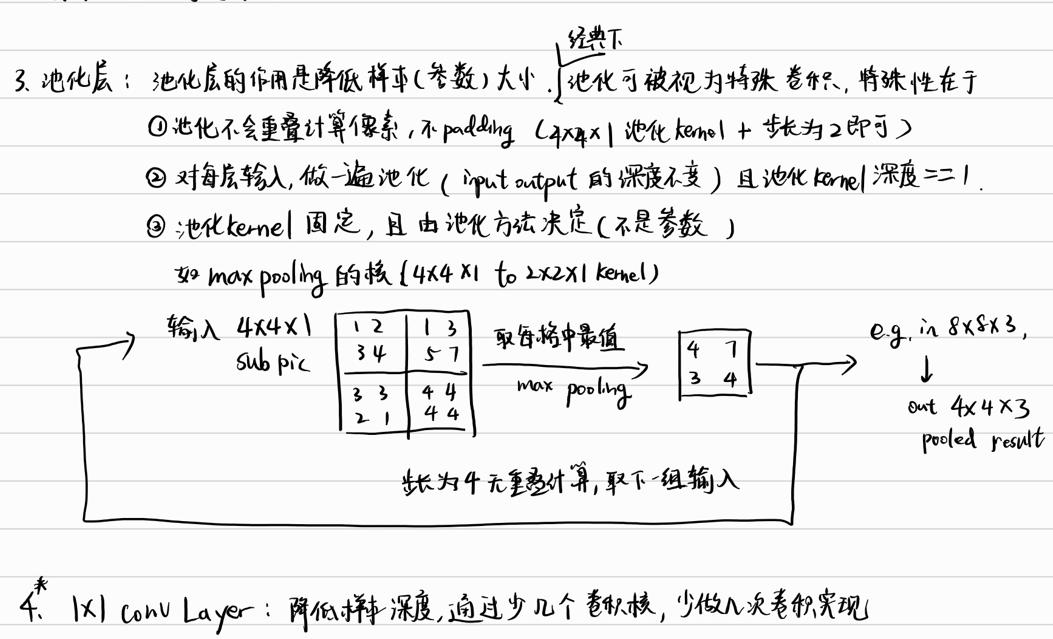 经典下
3. 池化层：池化层的作用是降低样本(参数)大小.池化可被视为特殊卷积,特殊性在于
①池化不会重叠计算像素,不padding (4×4×1池化kernel + 步长为2即可)
②对每层输入,做一遍池化(input output的深度不变)且池化kernel深度==1.
③池化kernel固定,且由池化方法决定(不是参数)
如max pooling的核(4×4×1 to 2×2×1 kernel)
输入 4×4×1
sub pic
1 2 1 3
3 4 5 7
3 3 4 4
2 1 4 4
取每格中最值
max pooling
4 7
3 4
e.g. in 8×8×3,
out 4×4×3
pooled result
步长为4无重叠计算,取下一组输入
4.* 1×1 conv Layer：降低样本深度,通过少几个卷积核,少做几次卷积实现